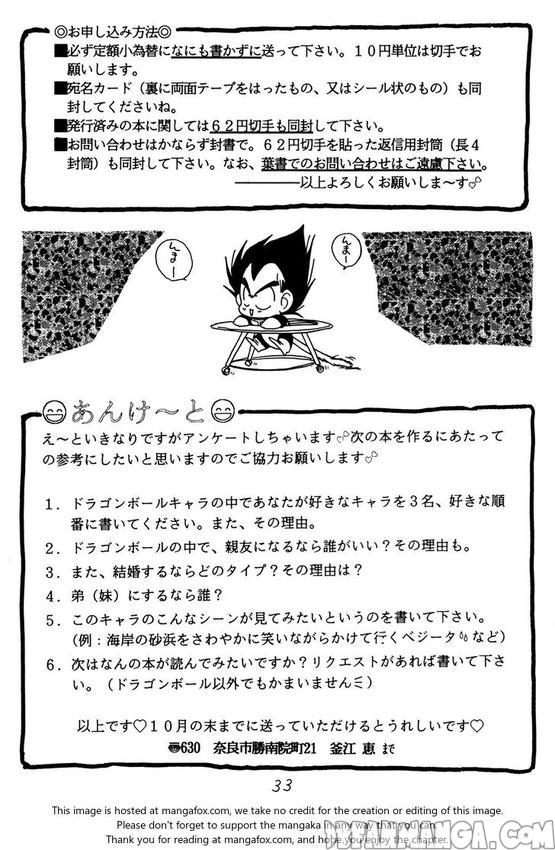 ◎お申し込み方法◎
■必ず定額小為替になにも書かずに送って下さい。１０円単位は切手でお
願いします。
■宛名カード（裏に両面テープをはったもの、又はシール状のもの）も同
封してくださいね。
■発行済みの本に関しては６２円切手も同封して下さい。
■お問い合わせはかならず封書で。６２円切手を貼った返信用封筒（長４
封筒）も同封して下さい。なお、葉書でのお問い合わせはご遠慮下さい。
――――以上よろしくお願いしま～す
んまー
んまー
あんけ～と
え～といきなりですがアンケートしちゃいます 次の本を作るにあたって
の参考にしたいと思いますのでご協力お願いします
１．ドラゴンボールキャラの中であなたが好きなキャラを３名、好きな順
番に書いてください。また、その理由。
２．ドラゴンボールの中で、親友になるなら誰がいい？その理由も。
３．また、結婚するならどのタイプ？その理由は？
４．弟（妹）にするなら誰？
５．このキャラのこんなシーンが見てみたいというのを書いて下さい。
（例：海岸の砂浜をさわやかに笑いながらかけて行くベジータ など）
６．次はなんの本が読んでみたいですか？リクエストがあれば書いて下さ
い。（ドラゴンボール以外でもかまいません）
以上です♡１０月の末までに送っていただけるとうれしいです♡
〠630 奈良市勝南院町21 釜江 恵 まで
33
This image is hosted at mangafox.com, we take no credit for the creation or editing of this image.
Please don't forget to support the mangaka in any way that you can.
Thank you for reading at mangafox.com, and hope you enjoy the chapter.